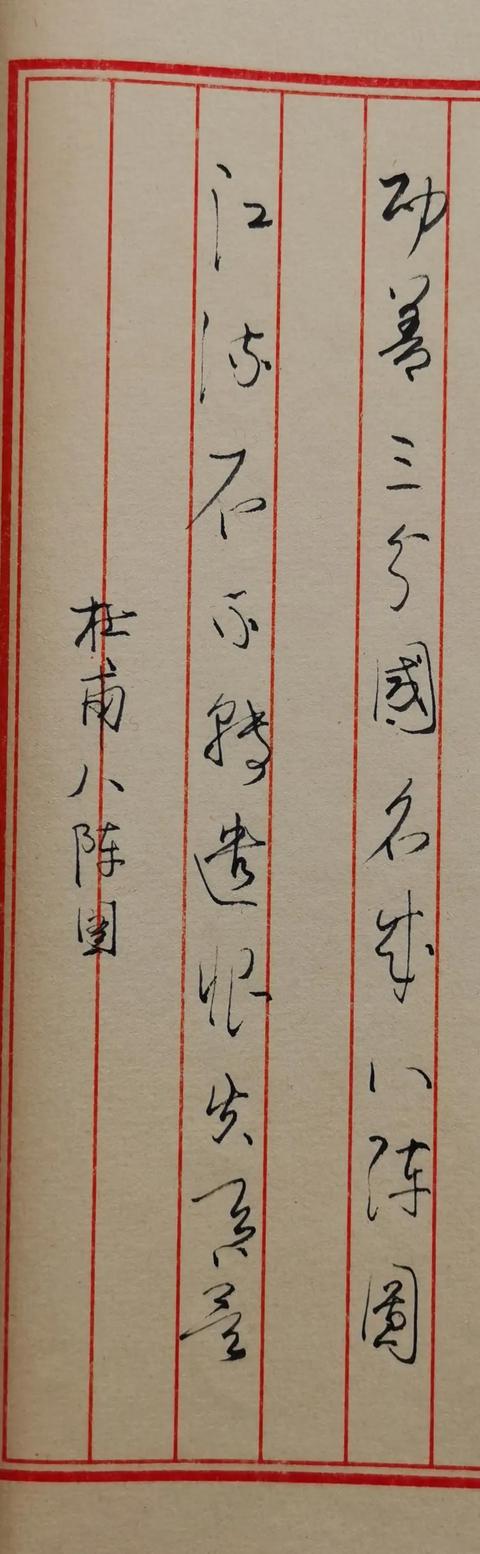 功盖三分國名成八阵圖
江流石不轉遺恨失吞吴
杜甫八阵圖